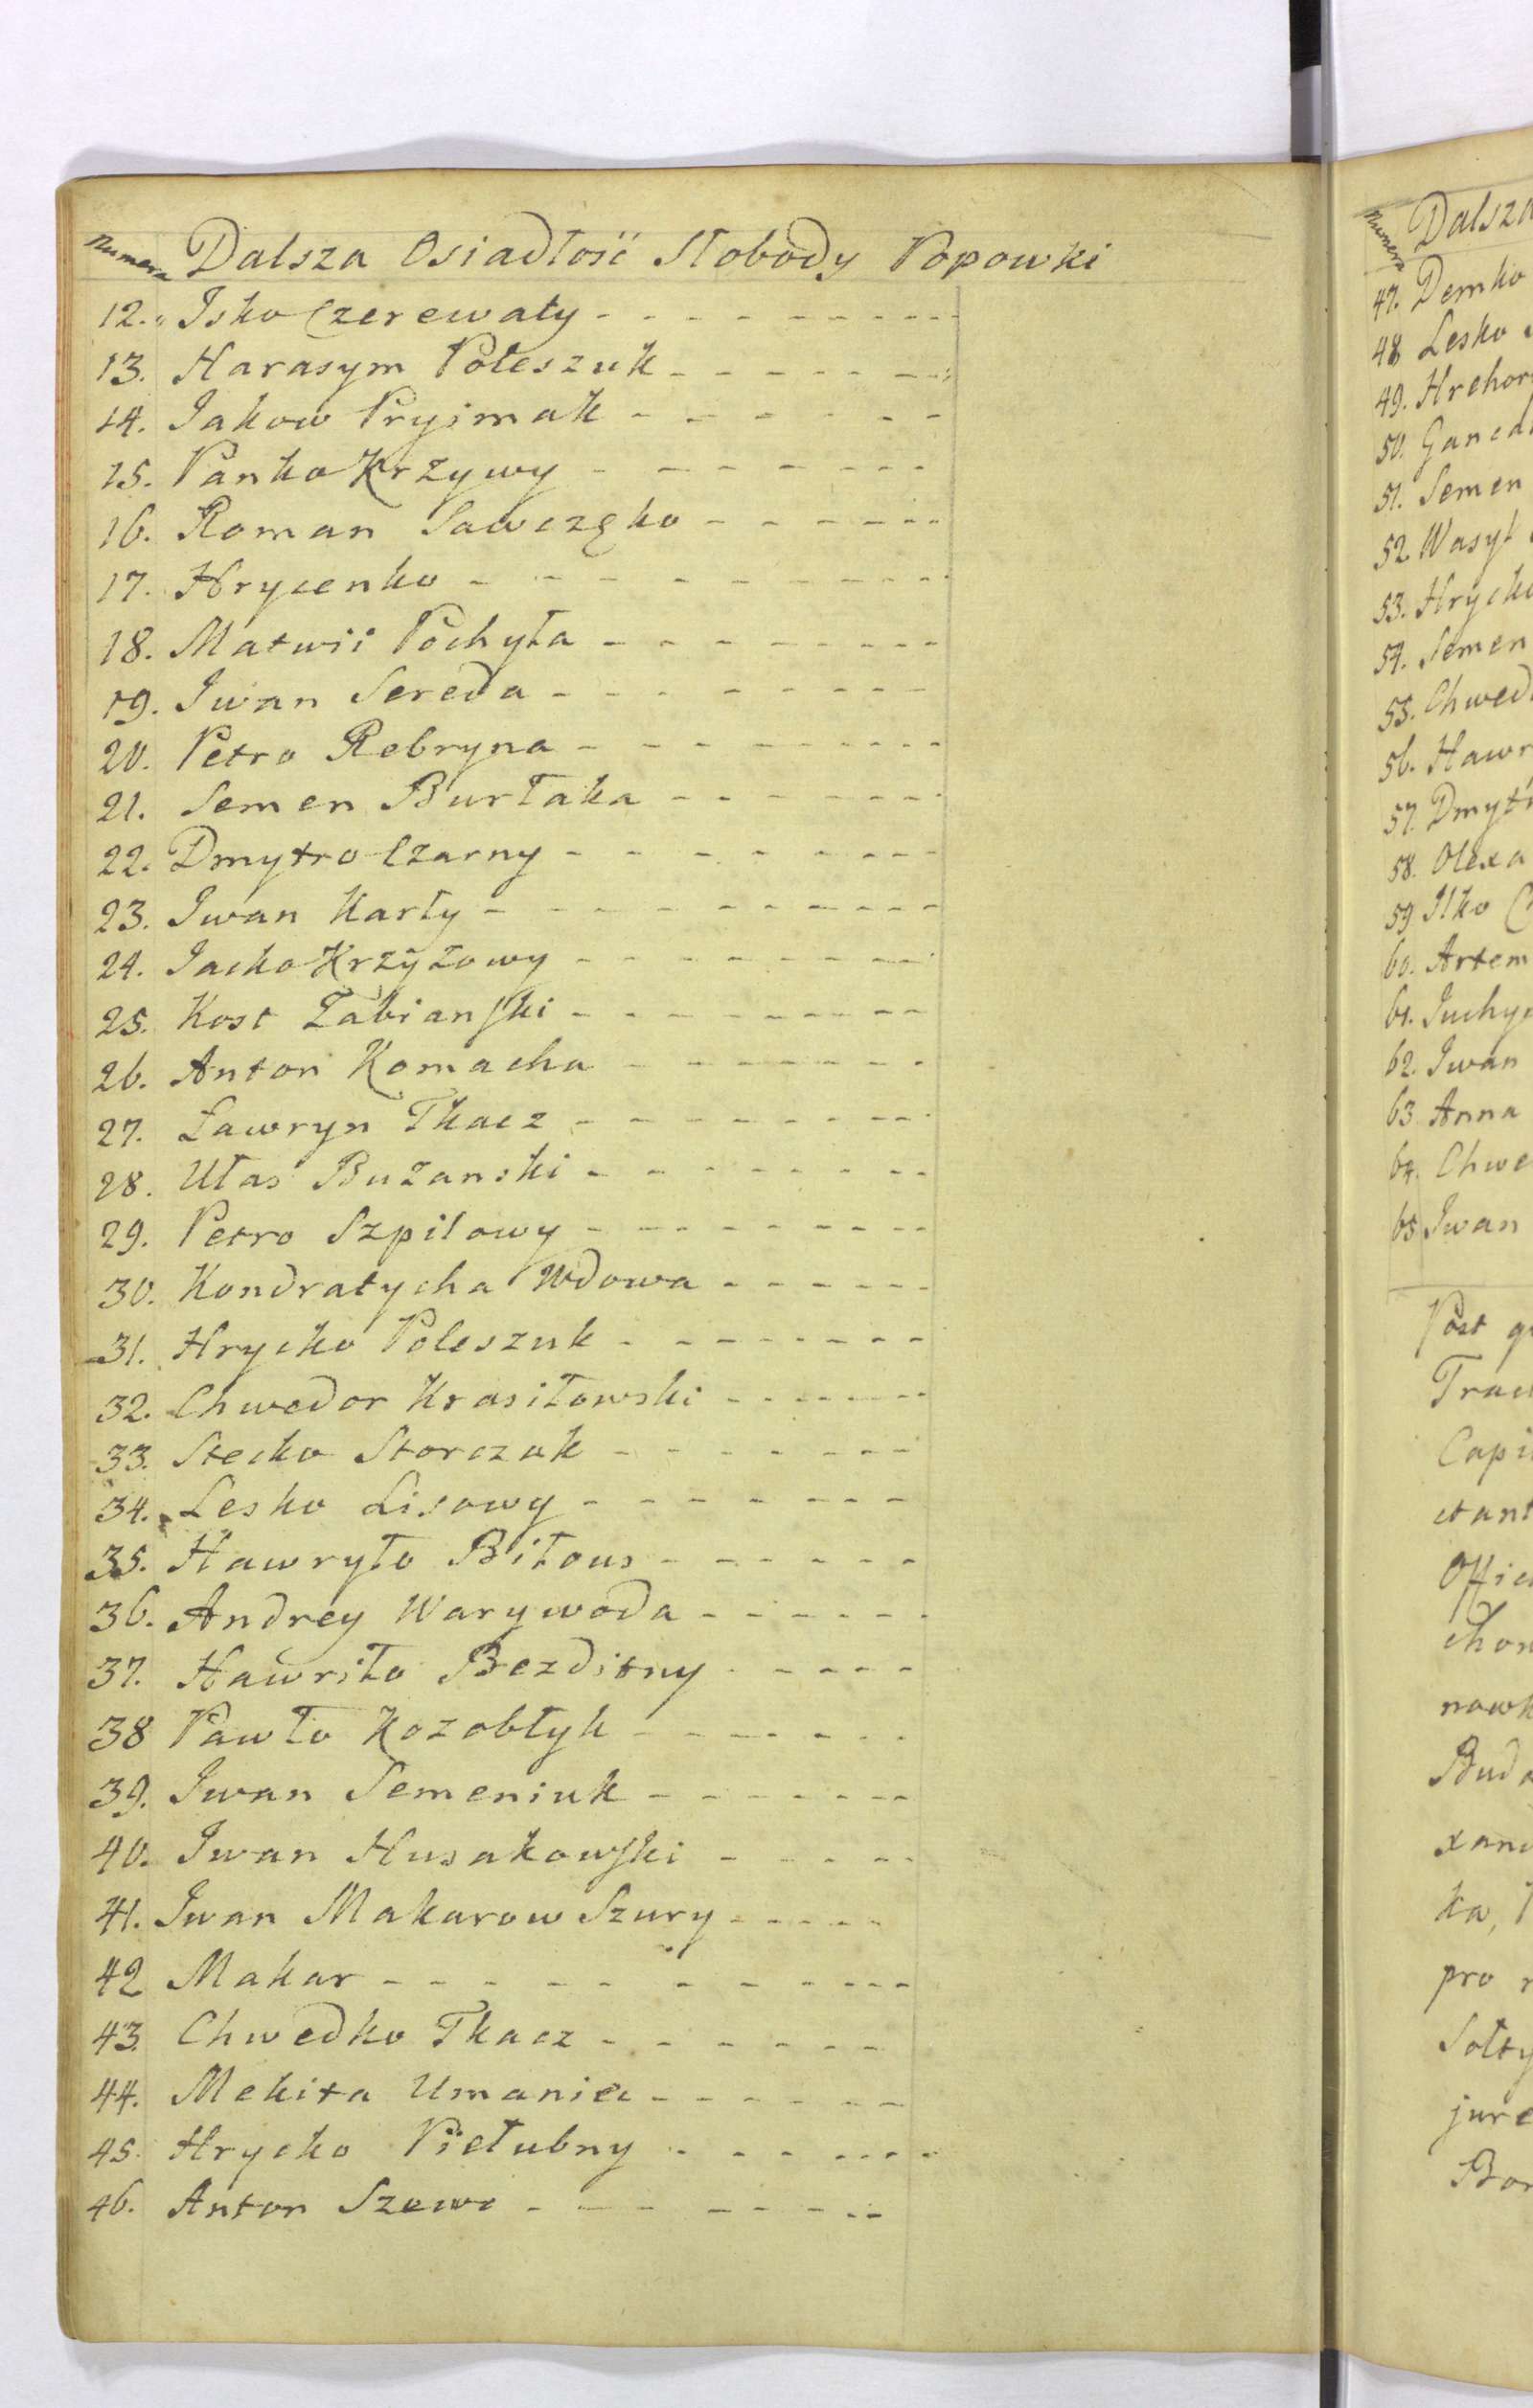 Numera Dalsza Osiadłość Słobody Popowki
12. Isko Czerewaty
13. Harasym Poleszuk
14. Jakow Pryimak
15. Panko Krzywy
16. Roman Sawczęko
17. Hrycenko
18. Matwii Pochyła
19. Iwan Sereda
20. Petro Rebryna
21. Semen Burłaka
22. Dmytro Czarny
23. Iwan Karły
24. Jacko Krzyżowy
25. Kost Żabianski
26. Anton Komacha
27. Ławryn Tkacz
28. Ułas Bużanski
29. Petro Szpilowy
30. Kondratycha Wdowa
31. Hrycko Poleszuk
32. Chwedor Krasiłowski
33. Stecko Storczak
34. Lesko Lisowy
35. Hawryło Biłous
36. Andrey Warywoda
37. Hawriło Bezditny
38 Pawło Kozobłyk
39. Iwan Semeniuk
40. Iwan Husakowski
41. Iwan Makarow Szury
42 Makar
43. Chwedko Tkacz
44. Mekita Umaniec
45. Hrycko Piełubny
46. Anton Szewc
Numera Dalsza
47. Demko
48 Lesko
49. Hrehor
50.
51. Semen
52 Wasyl
53. Hrycko
54. Semen
55. Chwed
56. Hawr
57. Dmyt
58. Olexa
59 Ilko
60. Artem
61. Juchy
62. Iwan
63 Anna
64. Chwe
65 Iwan
Post
Capi
Offici
nowk
Buda
xan
ka,
pro
Sołty
jure
Bor